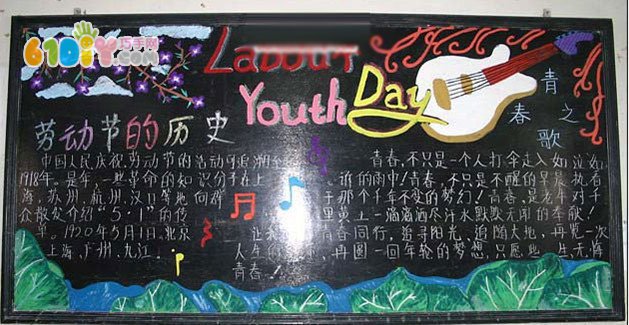 61DIY巧手网
.com
Labour
Youth Day
青春之歌
劳动节的历史
中国人民庆祝劳动节的活动可追溯至
1918年。是年，一些革命的知识分子在上
海、苏州、杭州、汉口等地向群
众散发介绍“5·1”的传
单。1920年5月1日，北京
上海、广州、九江、
青春，不只是一个人打伞走入如泣如
诉的雨中！青春，不只是不醒的早晨执着
于那个千年不变的梦幻！青春，是老牛对千
里黄土一滴滴洒尽汗水默默无闻的奉献！
让我 青春同行，追寻阳光，追随大地，再览一次
人生的 途，再圆一回年轮的梦想，只愿 生无悔
青春！